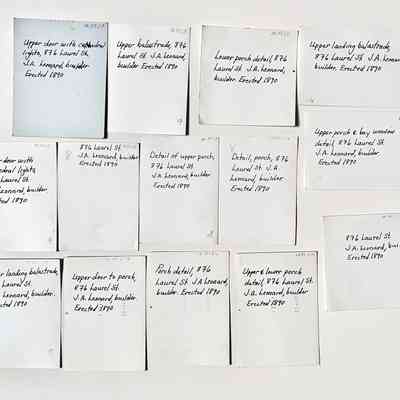 Upper door with cathedral
lights, 876 Laurel St.
J.A. Lennard, builder
Erected 1890
Upper balustrade, 876
Laurel St. J.A. Lennard,
builder Erected 1890
Lower porch detail, 876
Laurel St. J.A. Lennard,
builder. Erected 1890
Upper landing balustrade,
876 Laurel St. J.A. Lennard
builder. Erected 1890
Upper porch & bay window
detail, 876 Laurel St.
J.A. Lennard, builder
Erected 1890
door with
lights,
Laurel St
Lennard, builder
1890
876 Laurel St
J.A. Lennard, builder
Erected 1890
Detail of upper porch,
876 Laurel St.
J.A. Lennard, builder
Erected 1890
Detail, porch, 876
Laurel St. J.A
Lennard, builder.
Erected 1890
876 Laurel St.
J.A. Lennard,
Erected 1890
landing balustrade,
Laurel St.
Lennard, builder.
1890
Upper door to porch,
876 Laurel St.
J.A. Lennard, builder.
Erected 1890
Porch detail, 876
Laurel St. J.A. Lennard
builder. Erected 1890
Upper & lower porch
detail, 876 Laurel St.
J.A. Lennard, builder.
Erected 1890